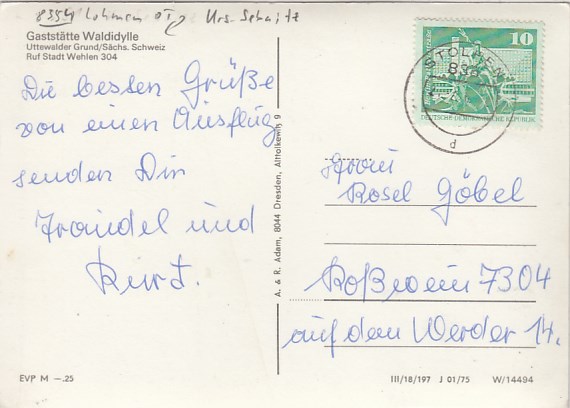 8354 Lohmen OT Urs-Schaitz
Gaststätte Waldidylle
Uttewalder Grund/Sächs. Schweiz
Ruf Stadt Wehlen 304
Die besten Grüße
von einen Ausflug
senden Dir
Traudel und
Kurt.
A. & R. Adam, 8044 Dresden, Alttolkewitz 9
10
DEUTSCHE DEMOKRATISCHE REPUBLIK
STOLPEN
d
Frau
Rosel Göbel
Roßwein 7304
auf dem Werder 14.
EVP M —.25
III/18/197 J 01/75 W/14494